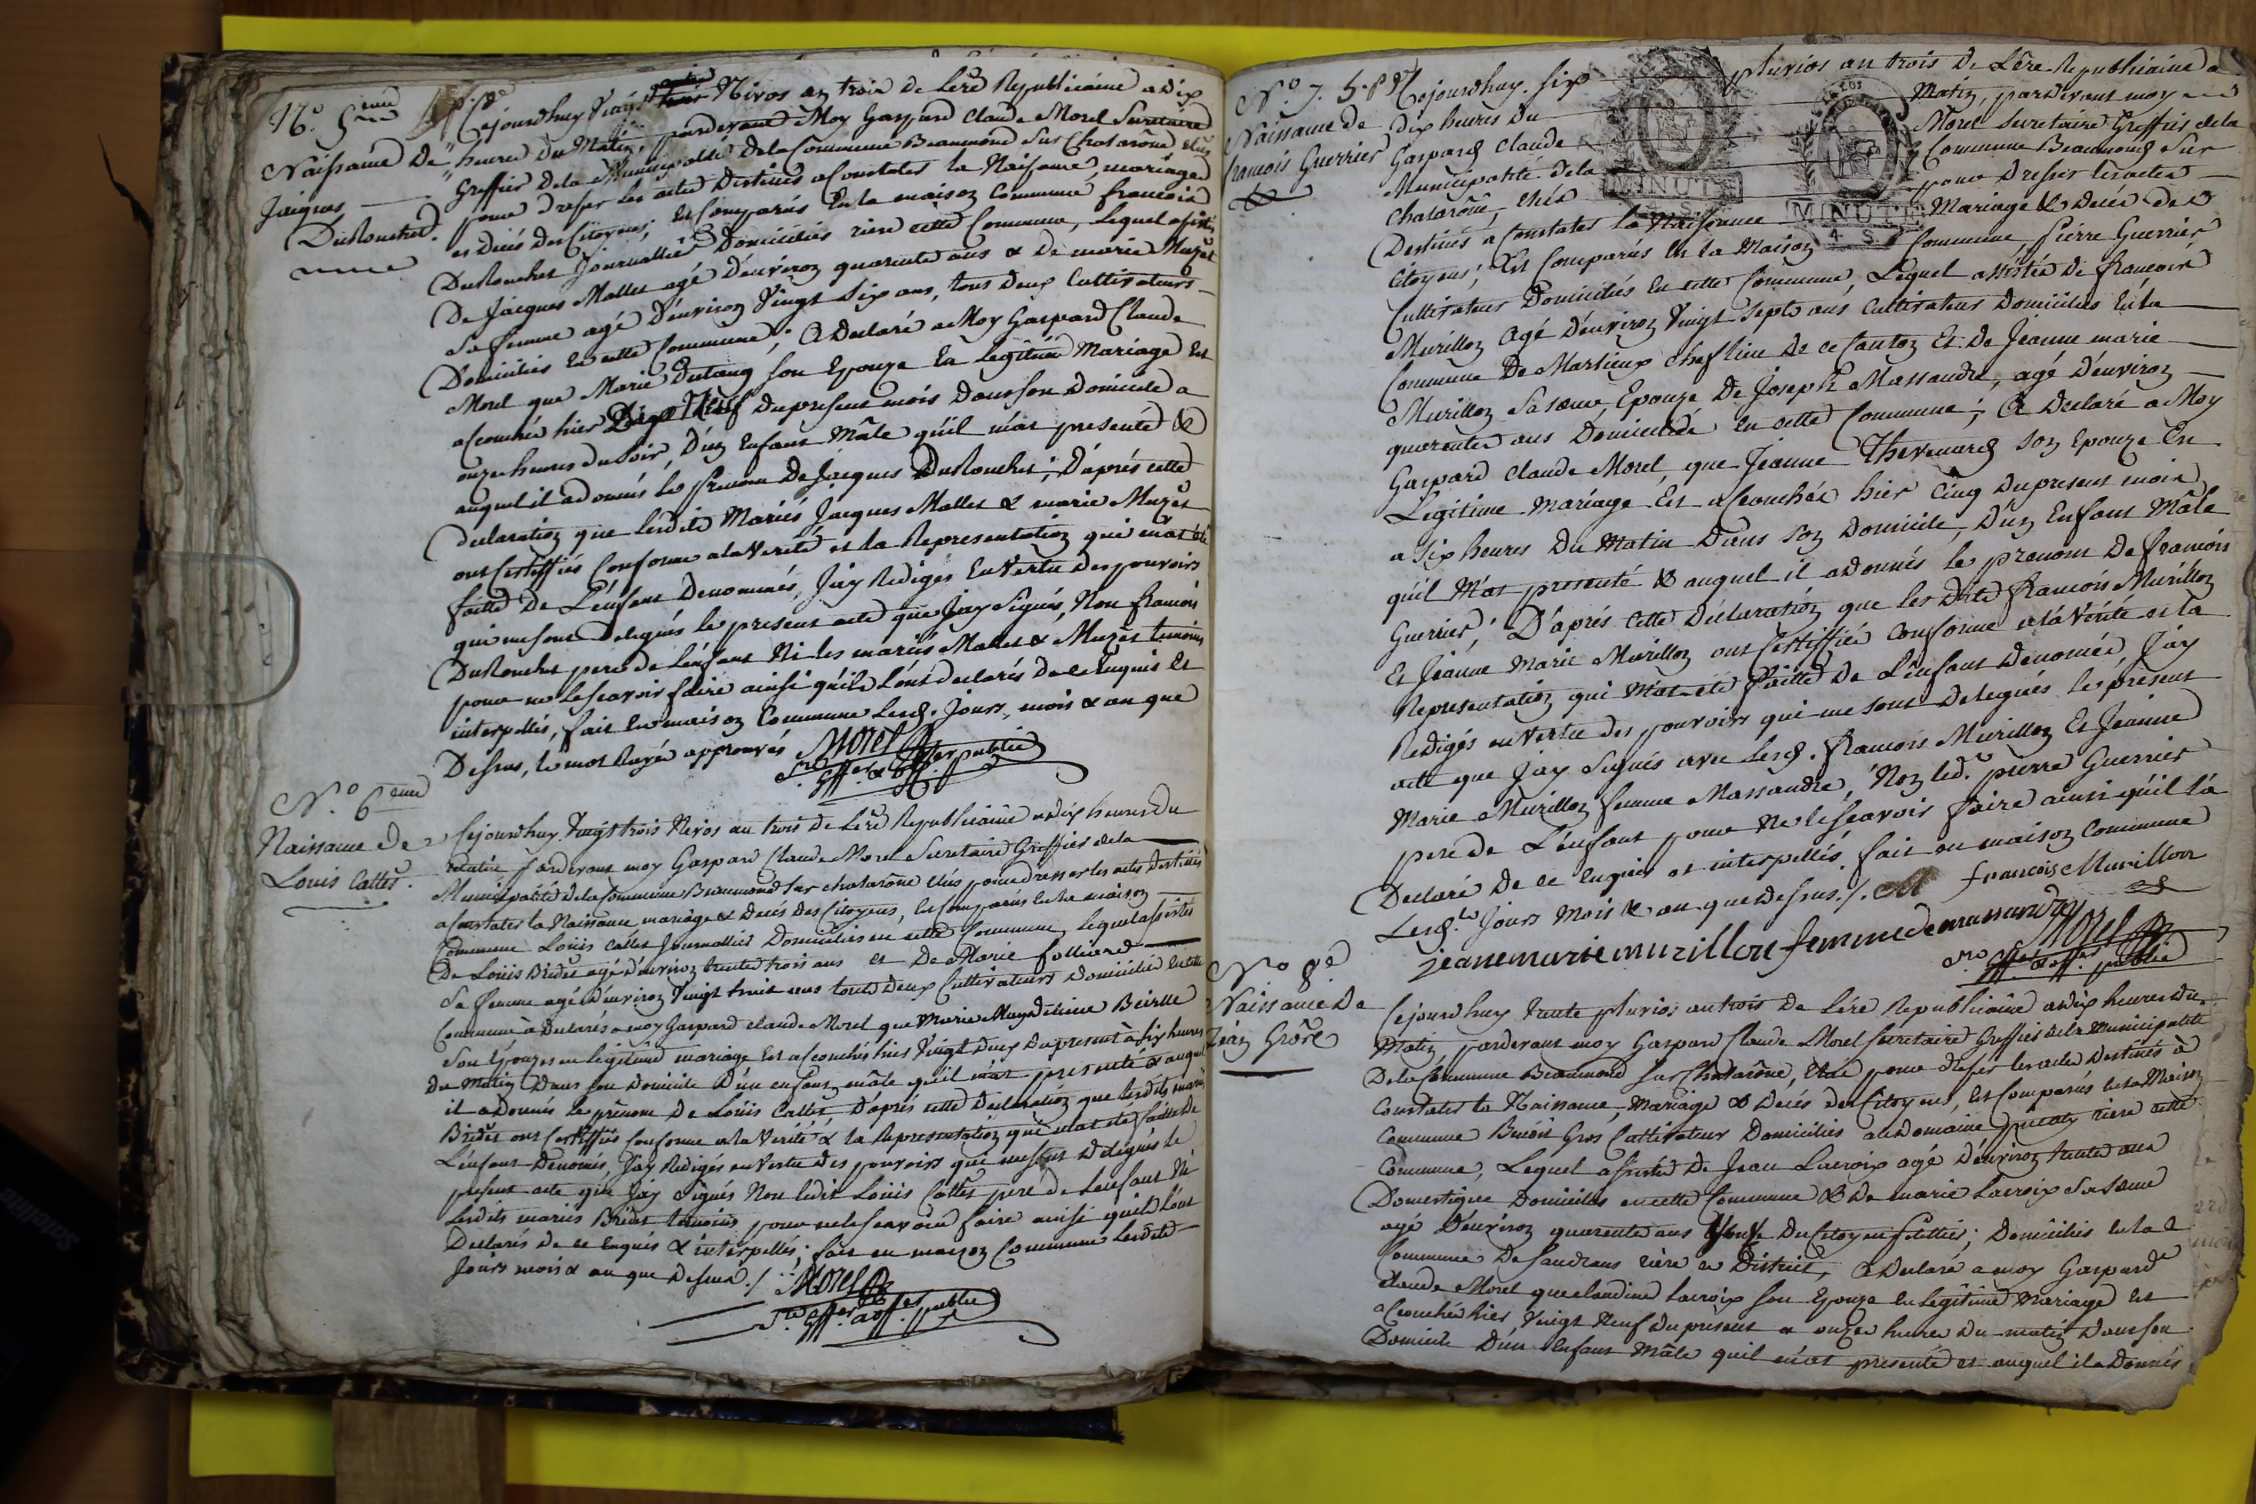 N.º 5ème
Naissance De
Jaiques
DuRonchet.
Cejourdhuy Vingt Nivos an trois de Lere Republicaine a Dix
heures Du Matin, pardevant Moy Gaspard Claude Morel Secretaire
Greffier Dela Municipalité Dela Commune Beaumond Sur Chalarône élus
pour dresser les actes Destinés a Constater la Naissance, mariage
et décés Des Citoyens; Est Comparus En la maison Commune francois
DuRonchet Journallier Domiciliés riere cette Commune, Lequel assistés
De Jacques Mallet agé D'environ quarente ans & de marie Muzet
Sa femme agé D'environ Vingt Six ans, tous Deux Cultivateurs
Domiciliés En cette Commune; A Declaré a Moy Gaspard Claude
Morel que Marie Dutang son Epouze En Legitime Mariage Est
acouchée hier Dix Neuf Dupresent mois Dans son Domicile a
onze heures Du Soir, D'un Enfant Mâle qu'il m'at presenté &
auquel il a donnés le Prenom De Jacques DuRonchet; D'aprés cette
Declaration que lesdits Mariés Jacques Mallet & marie Muzet
ont Certiffiés Conforme a la Verité et la Representation qui m'at été
faitte De L'enfant Denommés, J'ay Rediges En Vertu Des pouvoirs
qui me sont Delegués le present acte que J'ay Signés, Non francois
DuRonchet pere de L'enfant Ni les mariés Mallet & Muzet temoins
pour ne le Scavoir faire ainsi qu'ils L'ont declarés De ce Enquis Et
interpellés, fait En maison Commune Lesd. Jours, mois & an que
Dessus, le mot Rayé approuvés Morel
Sre Gffer & off. public
N.º 6ème
Naissance De
Louis Cattet.
Cejourdhuy Vingt trois Nivos an trois de Lere Republicaine a dix heures Du
matin pardevant moy Gaspard Claude Morel Secretaire Greffier dela
Municipalité Dela Commune Beaumond Sur chalarône élus pour dresser les actes Destinés
a Constater la Naissance mariage & Decés Des Citoyens, Est Comparus En la maison
Commune Louis Cattet Journallier Domiciliés en cette Commune, Lequel assistés
De Louis Bridet agé D'environ trente trois ans et De Marie follierd
Sa femme agé D'environ Vingt huit ans tout Deux Cultivateurs Domiciliés En cette
Commune à Declarés a moy Gaspard claude Morel que Marie Magdelaine
Son Epouze en legitime mariage Est acouchée hier Vingt Deux Du present à Six heures
Du Matin Dans son Domicile D'un enfant mâle qu'il m'at presenté & auquel
il a Donnés le prénom De Louis Cattet, D'aprés cette Declaration que lesdits mariés
Bridet ont Certiffiés Conforme a la Verité & la Representation qui m'at été faitte De
L'enfant Denomés, J'ay Redigés en Vertu Des pouvoirs qui me sont Delegués le
present acte que J'ay signés Non ledit Louis Cattet pere de L'enfant Ni
Lesdits mariés Bridet temoins pour ne le Scavoir faire ainsi qu'ils L'ont
Declarés De ce Enquis & interpellés; fait en maison Commune Lesdits
Jours mois & an que Dessus./. Morel
Sre Gffer & off. public
N.º 7.
Naissance de
francois Guerrier
Cejourdhuy Six pluvios an trois De Lere Republicaine a
Dix heures Du Matin, pardevant moy
Gaspard Claude Morel Secretaire Greffier dela
Municipalité dela Commune Beaumond Sur
Chalarône, élus pour Dresser les actes
MINUTE
4. S.
MINUTE
4. S.
Destinés a Constater la Naissance Mariage & Decés des
Citoyens; Est Comparus En la Maison Commune, Pierre Guerrier
Cultivateur Domiciliés En cette Commune, Lequel assistés De francois
Murillon agé D'environ Vingt Sept ans Cultivateur Domiciliés En la
Commune De Marlieux Cheflieu De ce Canton Et De Jeanne marie
Murillon Sa sœur, Epouze De Joseph Massandre, agé D'environ
quarente ans Domiciliée En cette Commune; A Declaré a Moy
Gaspard claude Morel, que Jeanne Thevenard Son Epouze En
Legitime mariage Est acouchée hier Cinq Dupresent mois
a Six heures Du Matin Dans Son Domicile, D'un Enfant Mâle
qu'il M'at presenté & auquel il a donnés le prenom De francois
Guerrier; D'aprés cette Declaration que les Dits francois Murillon
Et Jeanne Marie Murillon ont Certiffié Conforme a la Verité et la
Representation qui M'at été faitte De L'enfant Denomée, J'ay
Redigés en Vertu des pouvoirs qui me sont Delegués le present
acte que J'ay Signés avec Lesd. francois Murillon Et Jeanne
Marie Murillon femme Massandre, Non led. pierre Guerrier
pere de L'enfant pour ne le Scavoir faire ainsi qu'il l'a
Declaré De ce Enquis et interpellés fait en maison Commune
Lesd.ts Jours Mois & an que Dessus./. francois Murillon
jeanemarie murillon femme de massandre
Morel
Sre Gffer & off. public
N.º 8.e
Naissance De
Jean Grose
Cejourdhuy trente pluvios an trois De Lére Republicaine a dix heures Du
Matin pardevant moy Gaspard Claude Morel Secretaire Greffier dela Municipalité
Dela Commune Beaumond Sur Chalarône, élus pour dresser les actes Destinés à
Constater la Naissance, Mariage & Decés Des Citoyens, Est Comparus En la Maison
Commune Benoit Gros Cultivateur Domiciliés au Domaine riere cette
Commune, Lequel assisté De Jean Lacroix agé D'environ trente ans
Domestique Domiciliés en cette Commune & De marie Lacroix Sa sœur
agé D'environ quarente ans Du Citoyen; Domiciliés En la
Commune De Sandrans riere ce District, A Declaré a moy Gaspard
Claude Morel que claudine Lacroix Son Epouze En Legitime Mariage Est
acouchée hier, Vingt Neuf Dupresent a onze heures Du matin Dans son
Domicile D'un Enfant Mâle qu'il m'at presenté et auquel il a Donnés